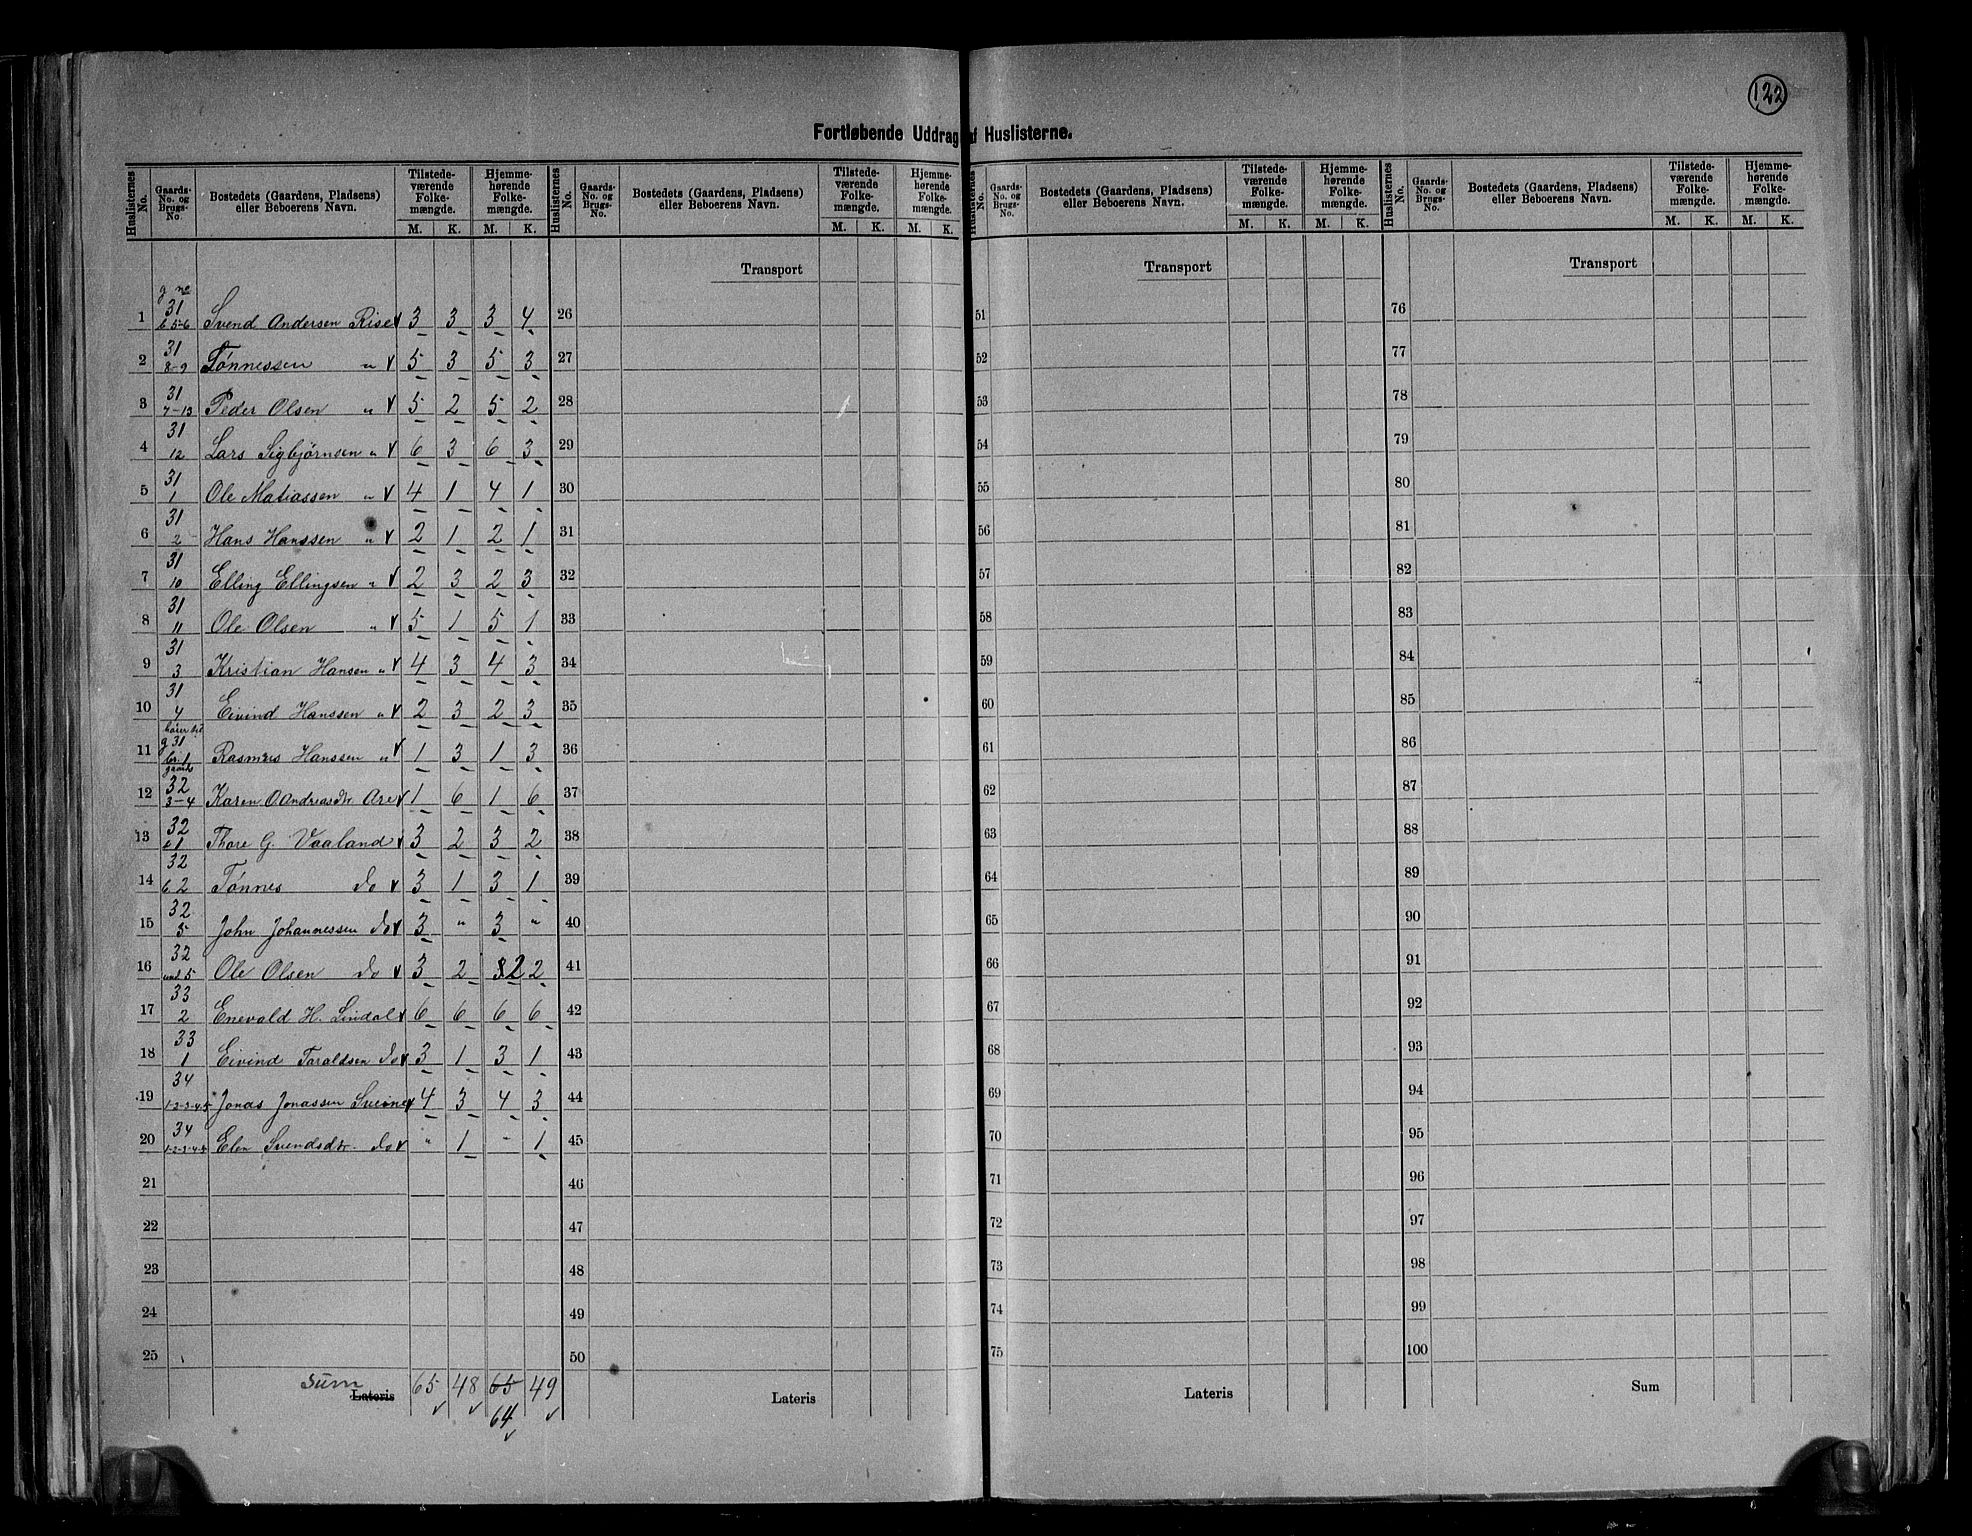 122
Fortløbende Uddrag af Huslisterne.
Huslisternes No. | Gaards-No. og Brugs-No. | Bostedets (Gaardens, Pladsens) eller Beboerens Navn. | Tilstedeværende Folkemængde. M. K. | Hjemmehørende Folkemængde. M. K.
Huslisternes No. | Gaards-No. og Brugs-No. | Bostedets (Gaardens, Pladsens) eller Beboerens Navn. | Tilstedeværende Folkemængde. M. K. | Hjemmehørende Folkemængde. M. K.
Huslisternes No. | Gaards-No. og Brugs-No. | Bostedets (Gaardens, Pladsens) eller Beboerens Navn. | Tilstedeværende Folkemængde. M. K. | Hjemmehørende Folkemængde. M. K.
Huslisternes No. | Gaards-No. og Brugs-No. | Bostedets (Gaardens, Pladsens) eller Beboerens Navn. | Tilstedeværende Folkemængde. M. K. | Hjemmehørende Folkemængde. M. K.
Transport Transport Transport
1 31 5-6 Svend Andersen Rise 3 3 3 4 26 51 76
2 31 8-9 Tønnessen " 5 3 5 3 27 52 77
3 31 7-13 Peder Olsen " 5 2 5 2 28 53 78
4 31 12 Lars Sigbjørnsen " 6 3 6 3 29 54 79
5 31 1 Ole Matiassen " 4 1 4 1 30 55 80
6 31 2 Hans Hanssen " 2 1 2 1 31 56 81
7 31 10 Elling Ellingsen " 2 3 2 3 32 57 82
8 31 11 Ole Olsen " 5 1 5 1 33 58 83
9 31 3 Kristian Hansen " 4 3 4 3 34 59 84
10 31 4 Eivind Hanssen " 2 3 2 3 35 60 85
hører til
11 g 31 br. 1 Rasmus Hanssen " 1 3 1 3 36 61 86
12 32 3-4 Karen O. Andreasdtr Are 1 6 1 6 37 62 87
13 32 1 Thore G. Vaaland 3 2 3 2 38 63 88
14 32 2 Tønnes do 3 1 3 1 39 64 89
15 32 5 John Johannessen do 3 " 3 " 40 65 90
16 32 und 5 Ole Olsen do 3 2 3 2 2 41 66 91
17 33 2 Enevald H. Lindal 6 6 6 6 42 67 92
18 33 1 Eivind Taraldsen do 3 1 3 1 43 68 93
19 34 1-2-3-4-5 Jonas Jonassen 4 3 4 3 44 69 94
20 34 Elen Svendsdtr. do " 1 " 1 45 70 95
21 46 71 96
22 47 72 97
23 48 73 98
24 49 74 99
25 50 75 100
Sum Lateris 65 48 65 49 Lateris Lateris Sum
64